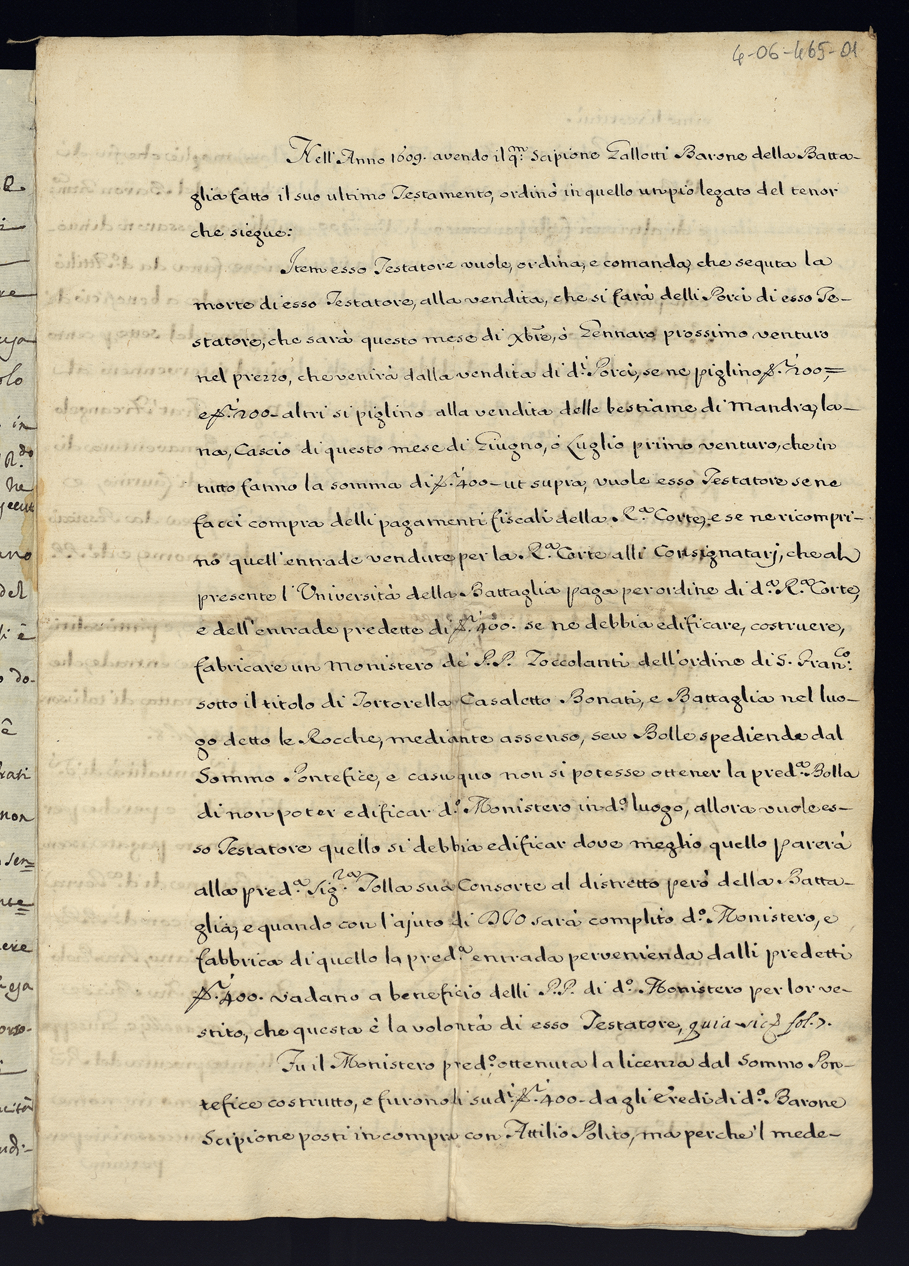 4-06-465-01
Nell'Anno 1609. avendo il qm. Scipione Gallotti Barone della Batta-
glia fatto il suo ultimo Testamento, ordinò in quello un pio legato del tenor
che siegue:
Item esso Testatore vuole, ordina, e comanda, che sequta la
morte di esso Testatore, alla vendita, che si farà delli Porci di esso Te-
statore, che sarà questo mese di Xbre, ò Gennaro prossimo venturo
nel prezzo, che venirà dalla vendita di di. Porci, se ne piglino 200,=
e 200- altri si piglino alla vendita delle bestiame di Mandra, la-
na, Cascio di questo mese di Giugno, ò Luglio primo venturo, che in
tutto fanno la somma di 400- ut supra, vuole esso Testatore se ne
facci compra delli pagamenti fiscali della Ra. Corte, e se ne ricompri-
no quell'entrade vendute per la Ra. Corte alli Consignatarj, che al
presente l'Università della Battaglia paga per ordine di da. Ra. Corte,
e dell'entrade predette di 400. se ne debbia edificare, costruere,
fabricare un Monistero de' P.P. Zoccolanti dell'ordine di S. Franco:
sotto il titolo di Tortorella Casaletto Bonati, e Battaglia nel luo-
go detto le Rocche, mediante assenso, seu Bolle spediende dal
Sommo Pontefice, e casu quo non si potesse ottener la preda. Bolla
di non poter edificar do. Monistero in do. luogo, allora vuole es-
so Testatore quello si debbia edificar dove meglio quello parerà
alla preda. Sigra. Tolla sua Consorte al distretto però della Batta-
glia, e quando con l'ajuto di DIO sarà complito do. Monistero, e
fabbrica di quello la preda. entrada pervenienda dalli predetti
400. vadano a beneficio delli P.P. di do. Monistero per lor ve-
stito, che questa è la volontà di esso Testatore, quia sic fol. 7.
Fu il Monistero predo. ottenuta la licenza dal Sommo Pon-
tefice costrutto, e furono li sudi. 400- dagli Eredi di do. Barone
Scipione posti in compra con Attilio Polito, ma perche'l mede-